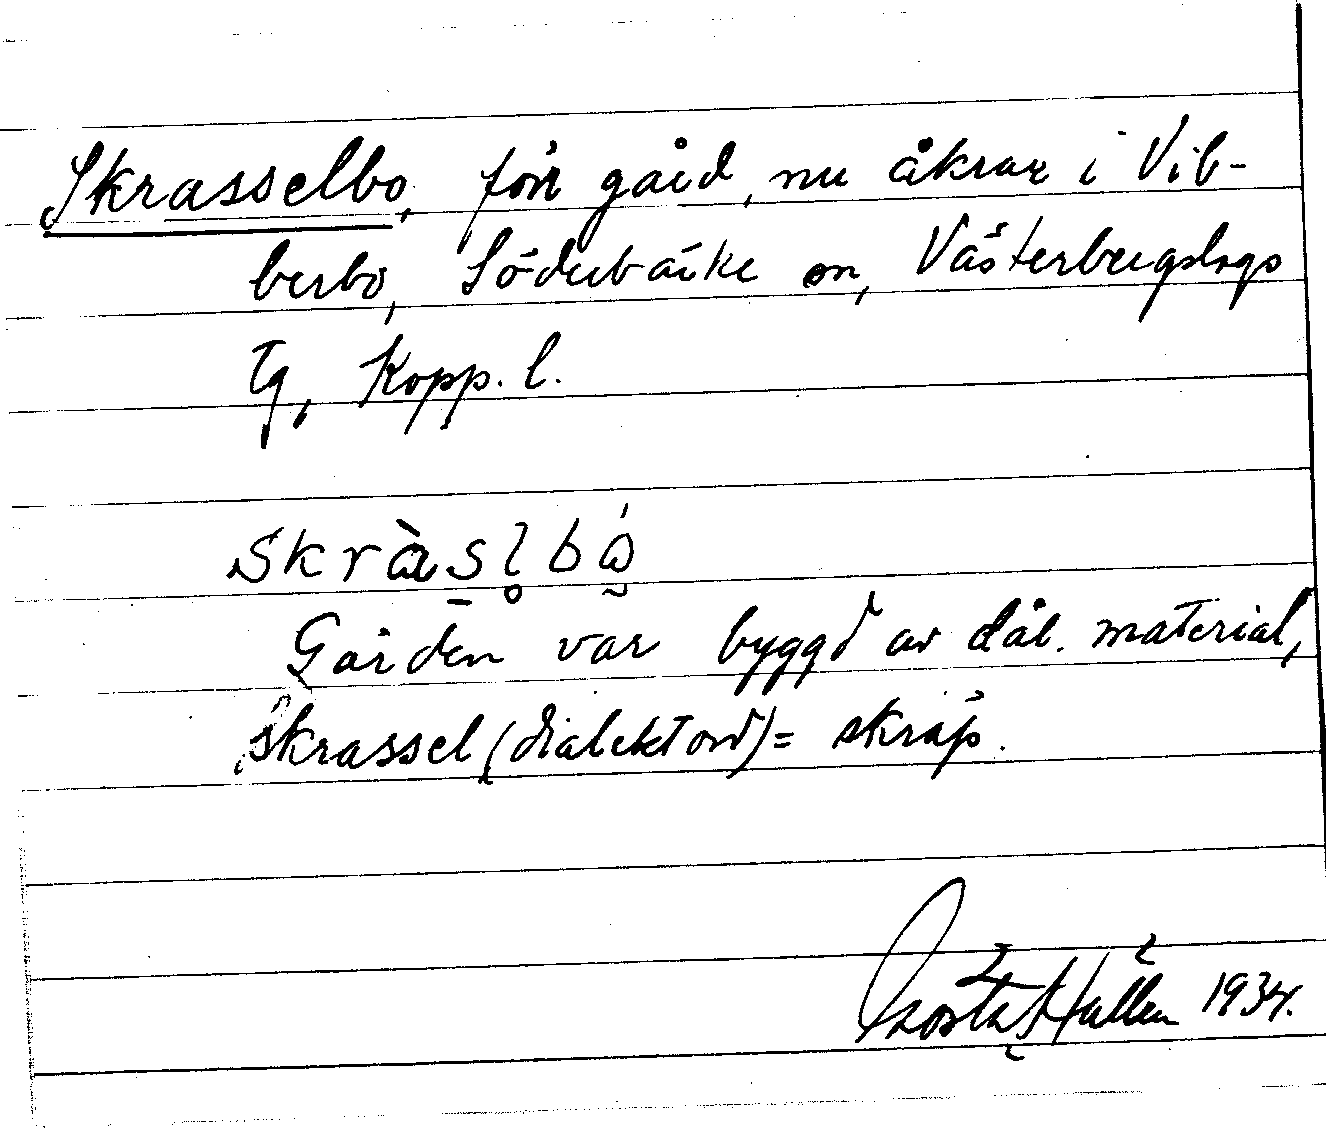 Skrasselbo, förr gård, nu åkrar i Vib-
berbo, Söderbärke sn, Västerbergslags
tg, Kopp. l.
skràsl̥bǻ
Gården var byggd av dål. material,
skrassel (dialektord) = skräp.
Gösta Hallén 1934.